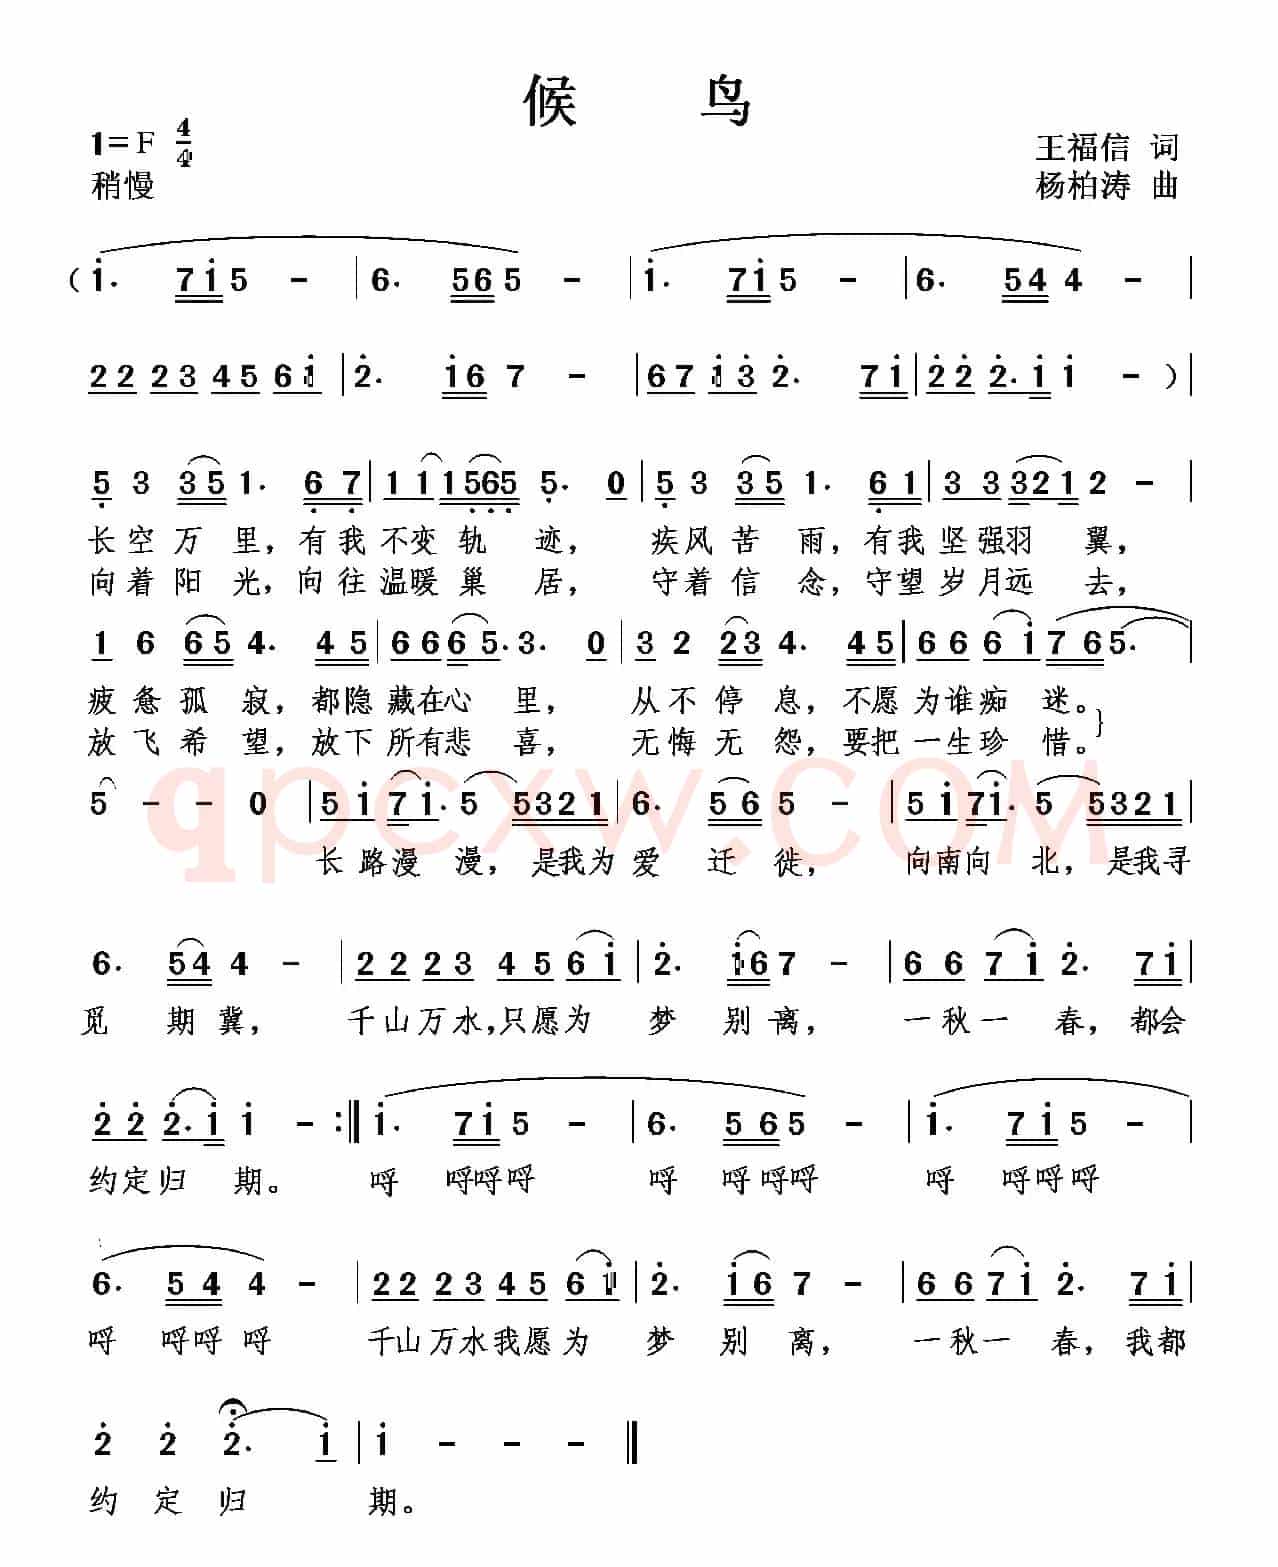 候 鸟
1=F 4/4
王福信 词
稍慢
杨柏涛 曲
( i. 7i5 - | 6. 565 - | i. 7i5 - | 6. 544 - |
22 23 45 6i | 2. i6 7 - | 67 i3 2. 7i | 22 2.i i - ) |
5 3 35 1. 67 | 11 1565 5. 0 | 5 3 35 1. 61 | 33 321 2 - |
长空万里，有我不变轨迹， 疾风苦雨，有我坚强羽翼，
向着阳光，向往温暖巢居， 守着信念，守望岁月远去，
1 6 65 4. 45 | 66 65. 3. 0 | 3 2 23 4. 45 | 66 6i 765. |
疲惫孤寂，都隐藏在心里， 从不停息，不愿为谁痴迷。
放飞希望，放下所有悲喜， 无悔无怨，要把一生珍惜。}
5 - - 0 | 5i 7i. 5 5321 | 6. 565 - | 5i 7i. 5 5321 |
qpcxw.COM
长路漫漫，是我为爱迁徙， 向南向北，是我寻
6. 544 - | 22 23 45 6i | 2. i67 - | 66 7i 2. 7i |
觅期冀， 千山万水，只愿为梦别离， 一秋一春，都会
22 2.i i - :|| i. 7i5 - | 6. 565 - | i. 7i5 - |
约定归期。 呼 呼呼呼 呼 呼呼呼 呼 呼呼呼
6. 544 - | 22 23 45 6i | 2. i6 7 - | 66 7i 2. 7i |
呼 呼呼呼 千山万水我愿为梦别离， 一秋一春，我都
2 2 2. i | i - - - ||
约定归 期。